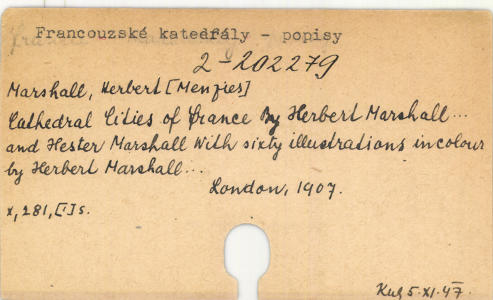 Francouzské katedrály - popisy
2-202279
Marshall, Herbert [Menzies]
Cathedral Cities of France By Herbert Marshall...
and Hester Marshall With sixty illustrations in colour
by Herbert Marshall...
London, 1907.
x, 281, [1] s.
5.XI.47.